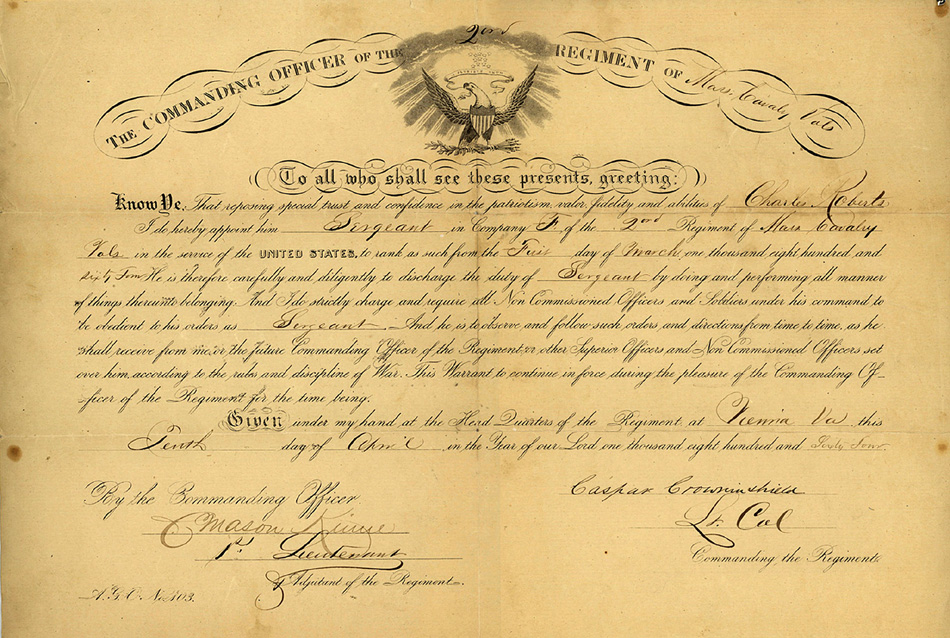 2nd
THE COMMANDING OFFICER OF THE REGIMENT OF Mass. Cavalry Vols
To all who shall see these presents, greeting:
Know Ye, That reposing special trust and confidence in the patriotism, valor, fidelity and abilities of Charles Roberts
I do hereby appoint him Sergeant in Company F, of the 2nd Regiment of Mass Cavalry
Vols in the service of the UNITED STATES, to rank as such from the First day of March one thousand eight hundred and
sixty four He is therefore carefully and diligently to discharge the duty of Sergeant by doing and performing all manner
of things thereunto belonging. And I do strictly charge and require all Non Commissioned Officers and Soldiers under his command to
be obedient to his orders as Sergeant. And he is to observe and follow such orders and directions from time to time, as he
shall receive from me, or the future Commanding Officer of the Regiment, or other Superior Officers and Non Commissioned Officers set
over him, according to the rules and discipline of War. This Warrant to continue in force during the pleasure of the Commanding Of-
ficer of the Regiment for the time being.
Given under my hand at the Head Quarters of the Regiment at Vienna Va this
Tenth day of April in the Year of our Lord one thousand eight hundred and Sixty four.
By the Commanding Officer
Caspar Crowninshield
C. Mason Kinne
Lt. Col
1st. Lieutenant
Commanding the Regiment.
Adjutant of the Regiment.
A.G.O. No. 103.